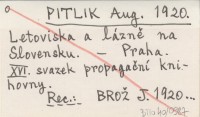 PITLIK Aug. 1920.
Letoviska a lázně na
Slovensku. – Praha.
XVI. svazek propagační kni-
hovny.
Rec.: BROŽ J. 1920...